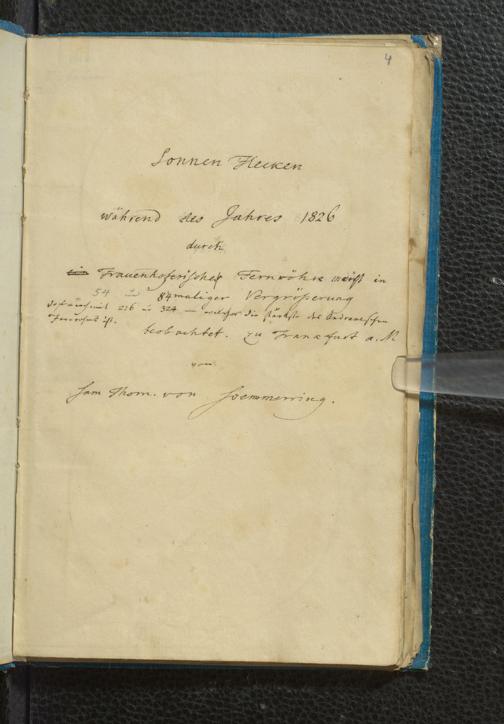 4
Sonnen Flecken
während des Jahres 1826
durch
ein Frauenhoferisches Fernröhre meist in
54 u 84 maliger Vergrößerung
216 u 324 — welches die stärkste des
ist.
beobachtet. zu Frankfurt a. M
von
Sam Thom. von Soemmerring.